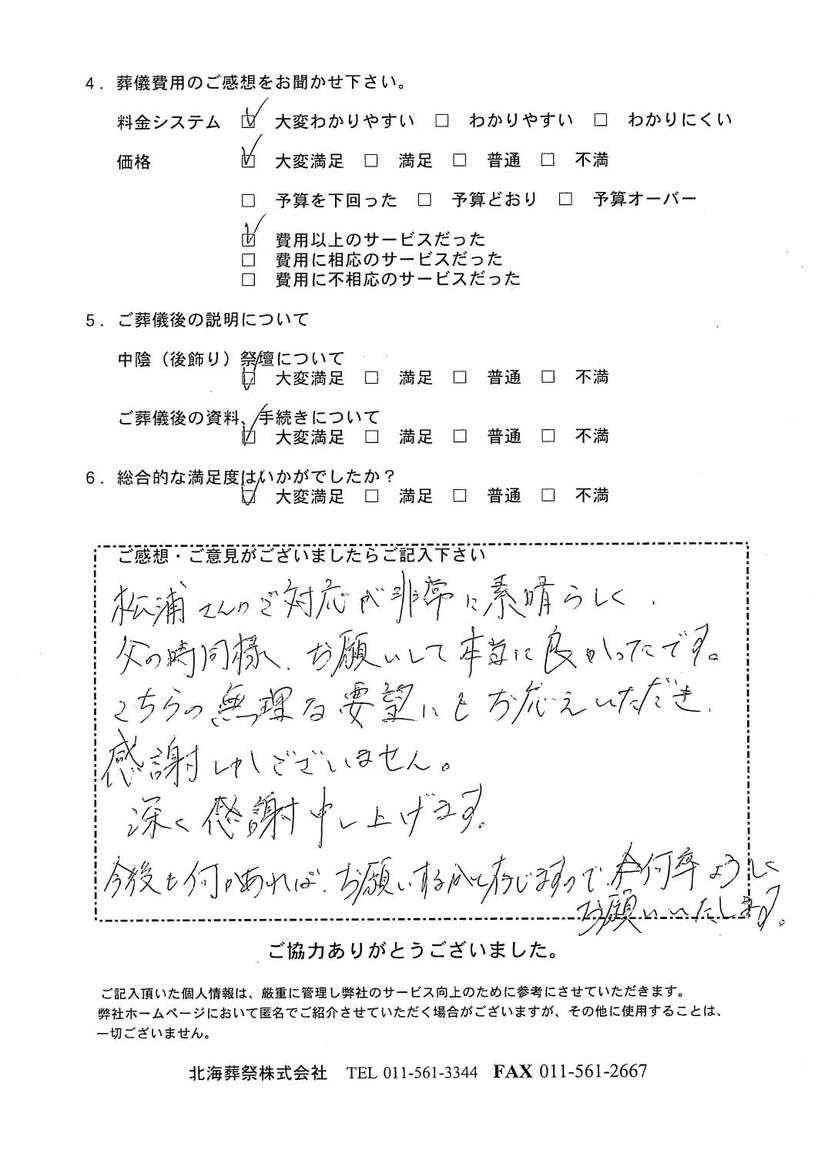 4．葬儀費用のご感想をお聞かせ下さい。
料金システム ☑ 大変わかりやすい □ わかりやすい □ わかりにくい
価格 ☑ 大変満足 □ 満足 □ 普通 □ 不満
□ 予算を下回った □ 予算どおり □ 予算オーバー
☑ 費用以上のサービスだった
□ 費用に相応のサービスだった
□ 費用に不相応のサービスだった
5．ご葬儀後の説明について
中陰（後飾り）祭壇について
☑ 大変満足 □ 満足 □ 普通 □ 不満
ご葬儀後の資料、手続きについて
☑ 大変満足 □ 満足 □ 普通 □ 不満
6．総合的な満足度はいかがでしたか？
☑ 大変満足 □ 満足 □ 普通 □ 不満
ご感想・ご意見がございましたらご記入下さい
松浦さんのご対応が非常に素晴らしく、
父の時同様、お願いして本当に良かったです。
こちらの無理な要望にもお応えいただき、
感謝しかございません。
深く感謝申し上げます。
今後も何かあれば、お願いするかと存じますので、何卒よろしく
お願いいたします。
ご協力ありがとうございました。
ご記入頂いた個人情報は、厳重に管理し弊社のサービス向上のために参考にさせていただきます。
弊社ホームページにおいて匿名でご紹介させていただく場合がございますが、その他に使用することは、
一切ございません。
北海葬祭株式会社 TEL 011-561-3344 FAX 011-561-2667